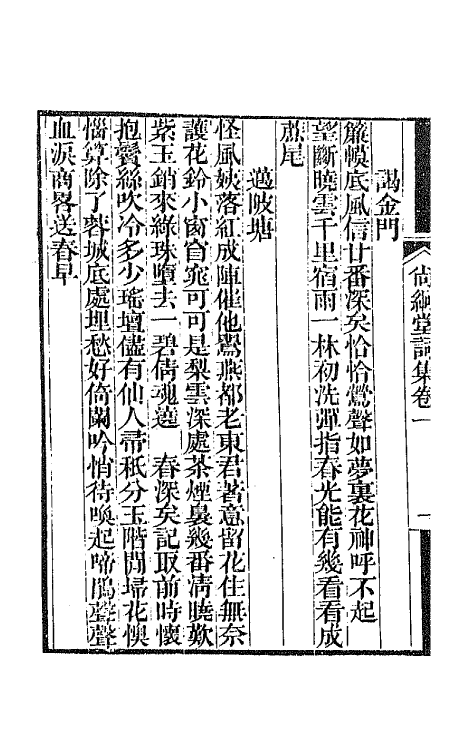 尙絅堂詞集卷一
一
謁金門
簾幙底風信廿番深矣恰恰鶯聲如夢裏花神呼不起
望斷曉雲千里宿雨一林初洗彈指春光能有幾看看成
薦尾
邁陂塘
怪風姨落紅成陣催他鶯燕都老東君著意留花住無奈
護花鈴小窗窅窕可可是梨雲深處茶煙裊幾番凊曉歎
紫玉銷來綠珠墮去一碧倩魂遶　春深矣記取前時懷
抱鬢絲吹冷多少瑤壇儘有仙人帚秖分玉階閒埽花懊
惱算除了蓉城底處埋愁好倚闌吟悄待喚起啼鵑聲聲
血淚商畧送春早